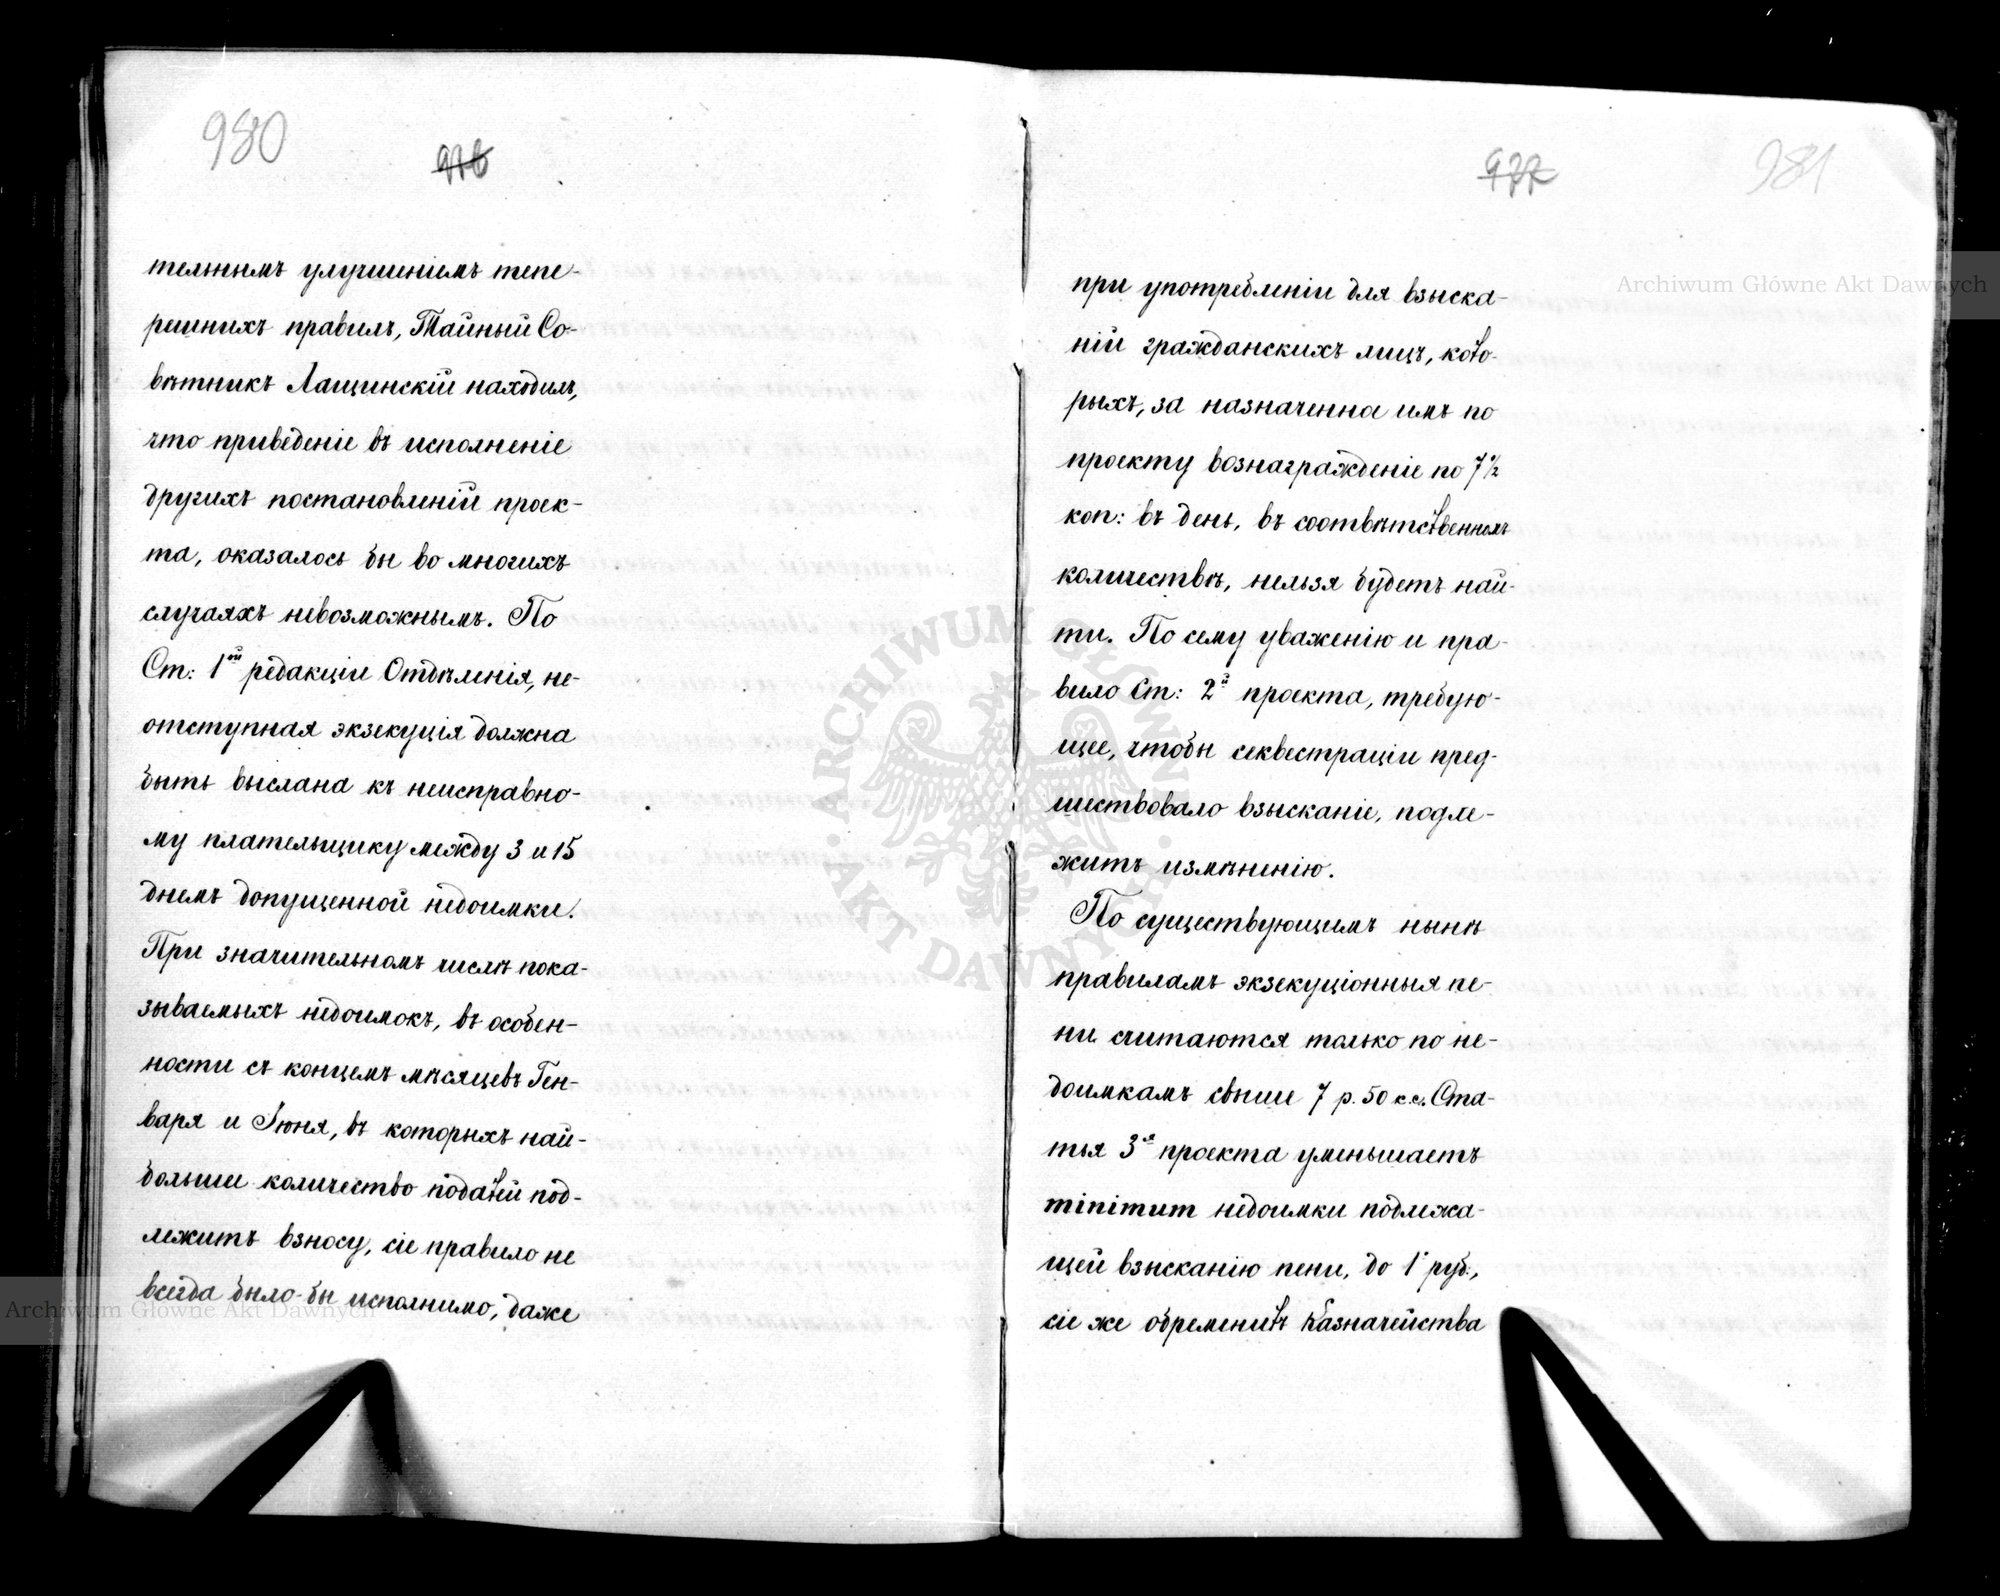 980
976
тельнымъ улучшеніемъ тепе-
решнихъ правилъ, Тайный Со-
вѣтникъ Лащинскій находилъ,
что приведеніе въ исполненіе
другихъ постановленій проек-
та, оказалось бы во многихъ
случаяхъ невозможнымъ. По
Ст: 1ой редакціи Отдѣленія, не-
отступная экзекуція должна
быть выслана къ неисправно-
му плательщику между 3 и 15
днемъ допущенной недоимки.
При значительномъ числѣ пока-
зываемыхъ недоимокъ, въ особен-
ности съ концемъ мѣсяцевъ Ген-
варя и Іюня, въ которыхъ най-
больше количество податей под-
лежитъ взносу, сіе правило не
всегда было-бы исполнимо, даже
977
981
при употребленіи для взыска-
ній гражданскихъ лицъ, кото-
рыхъ, за назначенное имъ по
проекту вознагражденіе по 7½
коп: въ день, въ соотвѣтственномъ
количествѣ, нельзя будетъ най-
ти. По сему уваженію и пра-
вило Ст: 2й проекта, требую-
щее, чтобы секвестраціи пред-
шествовало взысканіе, подле-
житъ измѣненію.
По существующимъ нынѣ
правиламъ экзекуціонныя пе-
ни считаются только по не-
доимкамъ свыше 7 р. 50 к.с. Ста-
тья 3я проекта уменьшаетъ
minimum недоимки подлежа-
щей взысканію пени, до 1 руб.,
сіе же обременитъ Казначейства
Archiwum Główne Akt Dawnych
Archiwum Główne Akt Dawnych
ARCHIWUM GŁÓWNE AKT DAWNYCH